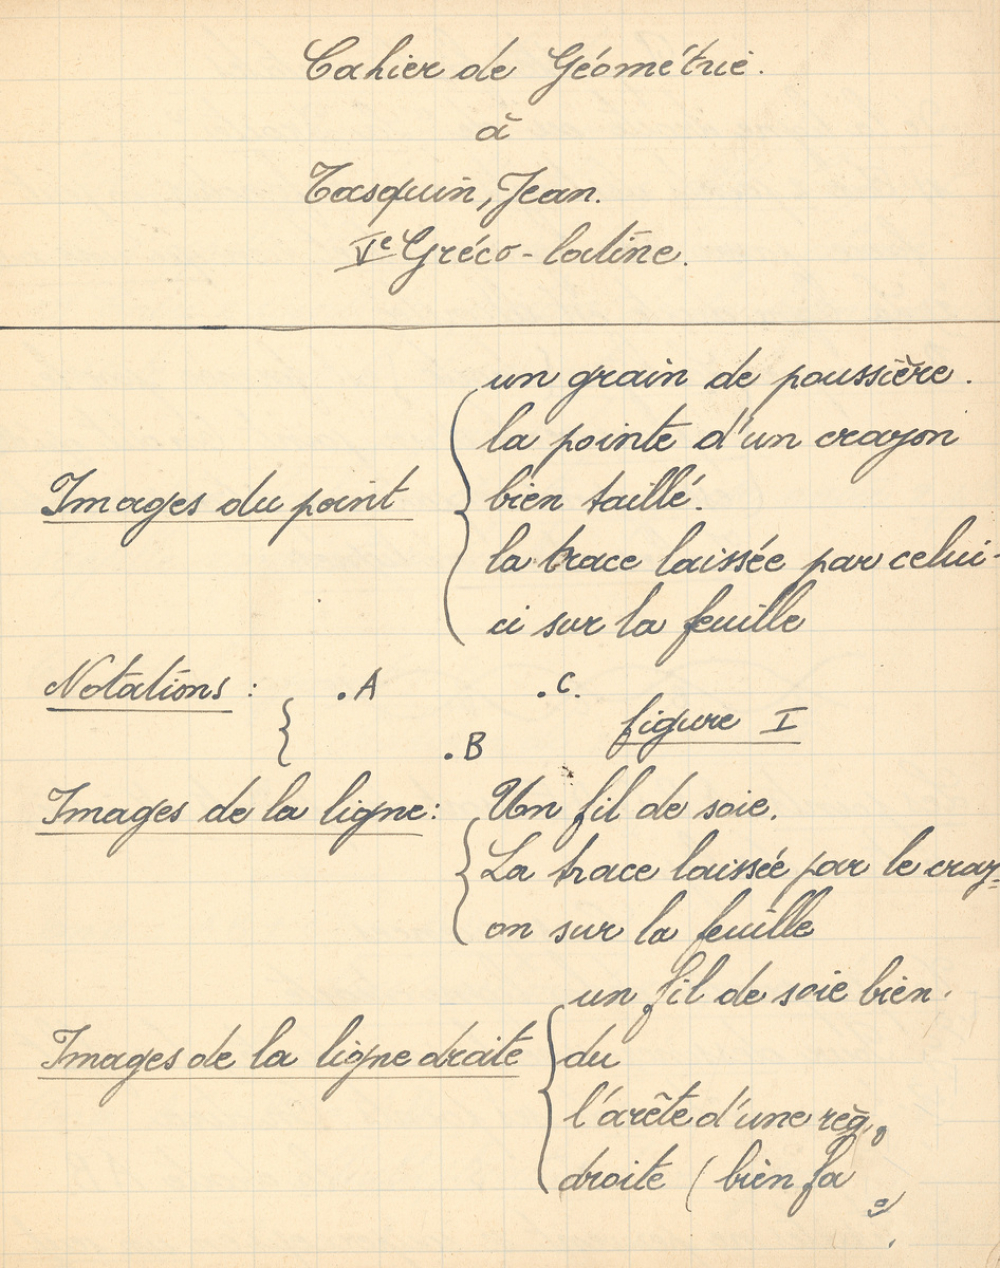 Cahier de Géométrie.
à
Tasquin, Jean.
Ve Gréco-latine.
un grain de poussière.
la pointe d'un crayon
Images du point
bien taillé.
la trace laissée par celui-
ci sur la feuille
Notations : .A .C.
figure I
.B
Images de la ligne: Un fil de soie.
La trace laissée par le cray=
on sur la feuille
un fil de soie bien
Images de la ligne droite
du
l'arête d'une règ
droite (bien fa